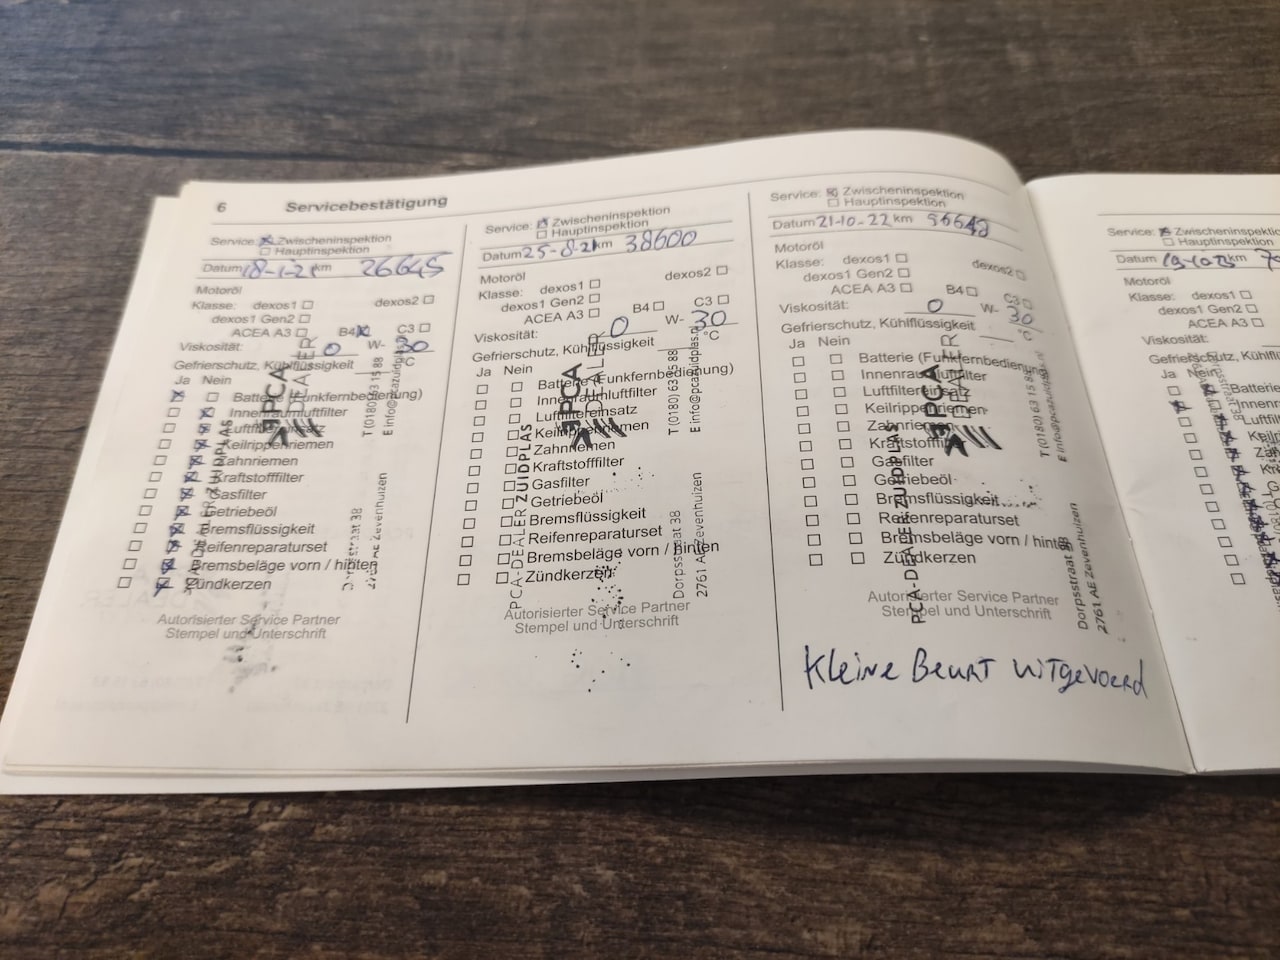 6 Servicebestätigung
Service: Zwischeninspektion
Hauptinspektion
Datum 18-1-21 km 26645
Motoröl
Klasse: dexos1 dexos2
dexos1 Gen2
ACEA A3 B4 C3
Viskosität: 0 W- 30
Gefrierschutz, Kühlflüssigkeit °C
Ja Nein
Batterie (Funkfernbedienung)
Innenraumluftfilter
Luftfiltereinsatz
Keilrippenriemen
Zahnriemen
Kraftstofffilter
Gasfilter
Getriebeöl
Bremsflüssigkeit
Reifenreparaturset
Bremsbeläge vorn / hinten
Zündkerzen
Autorisierter Service Partner
Stempel und Unterschrift
PCA
DEALER
T (0180) 63 15 88
E info@pcazuidplas.nl
Dorpsstraat 38
2761 AE Zevenhuizen
Service: Zwischeninspektion
Hauptinspektion
Datum 25-8-21 km 38600
Motoröl
Klasse: dexos1 dexos2
dexos1 Gen2
ACEA A3 B4 C3
Viskosität: 0 W- 30
Gefrierschutz, Kühlflüssigkeit °C
Ja Nein
Batterie (Funkfernbedienung)
Innenraumluftfilter
Luftfiltereinsatz
Keilrippenriemen
Zahnriemen
Kraftstofffilter
Gasfilter
Getriebeöl
Bremsflüssigkeit
Reifenreparaturset
Bremsbeläge vorn / hinten
Zündkerzen
Autorisierter Service Partner
Stempel und Unterschrift
PCA
DEALER
PCA-DEALER ZUIDPLAS
T (0180) 63 15 88
E info@pcazuidplas.nl
Dorpsstraat 38
2761 AE Zevenhuizen
Service: Zwischeninspektion
Hauptinspektion
Datum 21-10-22 km
Motoröl
Klasse: dexos1 dexos2
dexos1 Gen2
ACEA A3 B4 C3
Viskosität: 0 W- 30
Gefrierschutz, Kühlflüssigkeit °C
Ja Nein
Batterie (Funkfernbedienung)
Innenraumluftfilter
Luftfiltereinsatz
Keilrippenriemen
Zahnriemen
Kraftstofffilter
Gasfilter
Getriebeöl
Bremsflüssigkeit
Reifenreparaturset
Bremsbeläge vorn / hinten
Zündkerzen
Autorisierter Service Partner
Stempel und Unterschrift
PCA
DEALER
PCA-DEALER ZUIDPLAS
T (0180) 63 15 88
E info@pcazuidplas.nl
Dorpsstraat 38
2761 AE Zevenhuizen
Kleine Beurt uitgevoerd
Service: Zwischeninspektion
Hauptinspektion
Datum km
Motoröl
Klasse: dexos1
dexos1 Gen2
ACEA A3
Viskosität:
Gefrierschutz,
Ja Nein